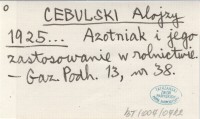 CEBULSKI Alojzy
1925... Azotniak i jego
zastosowanie w rolnictwie.
– Gaz. Podh. 13, nr 38.